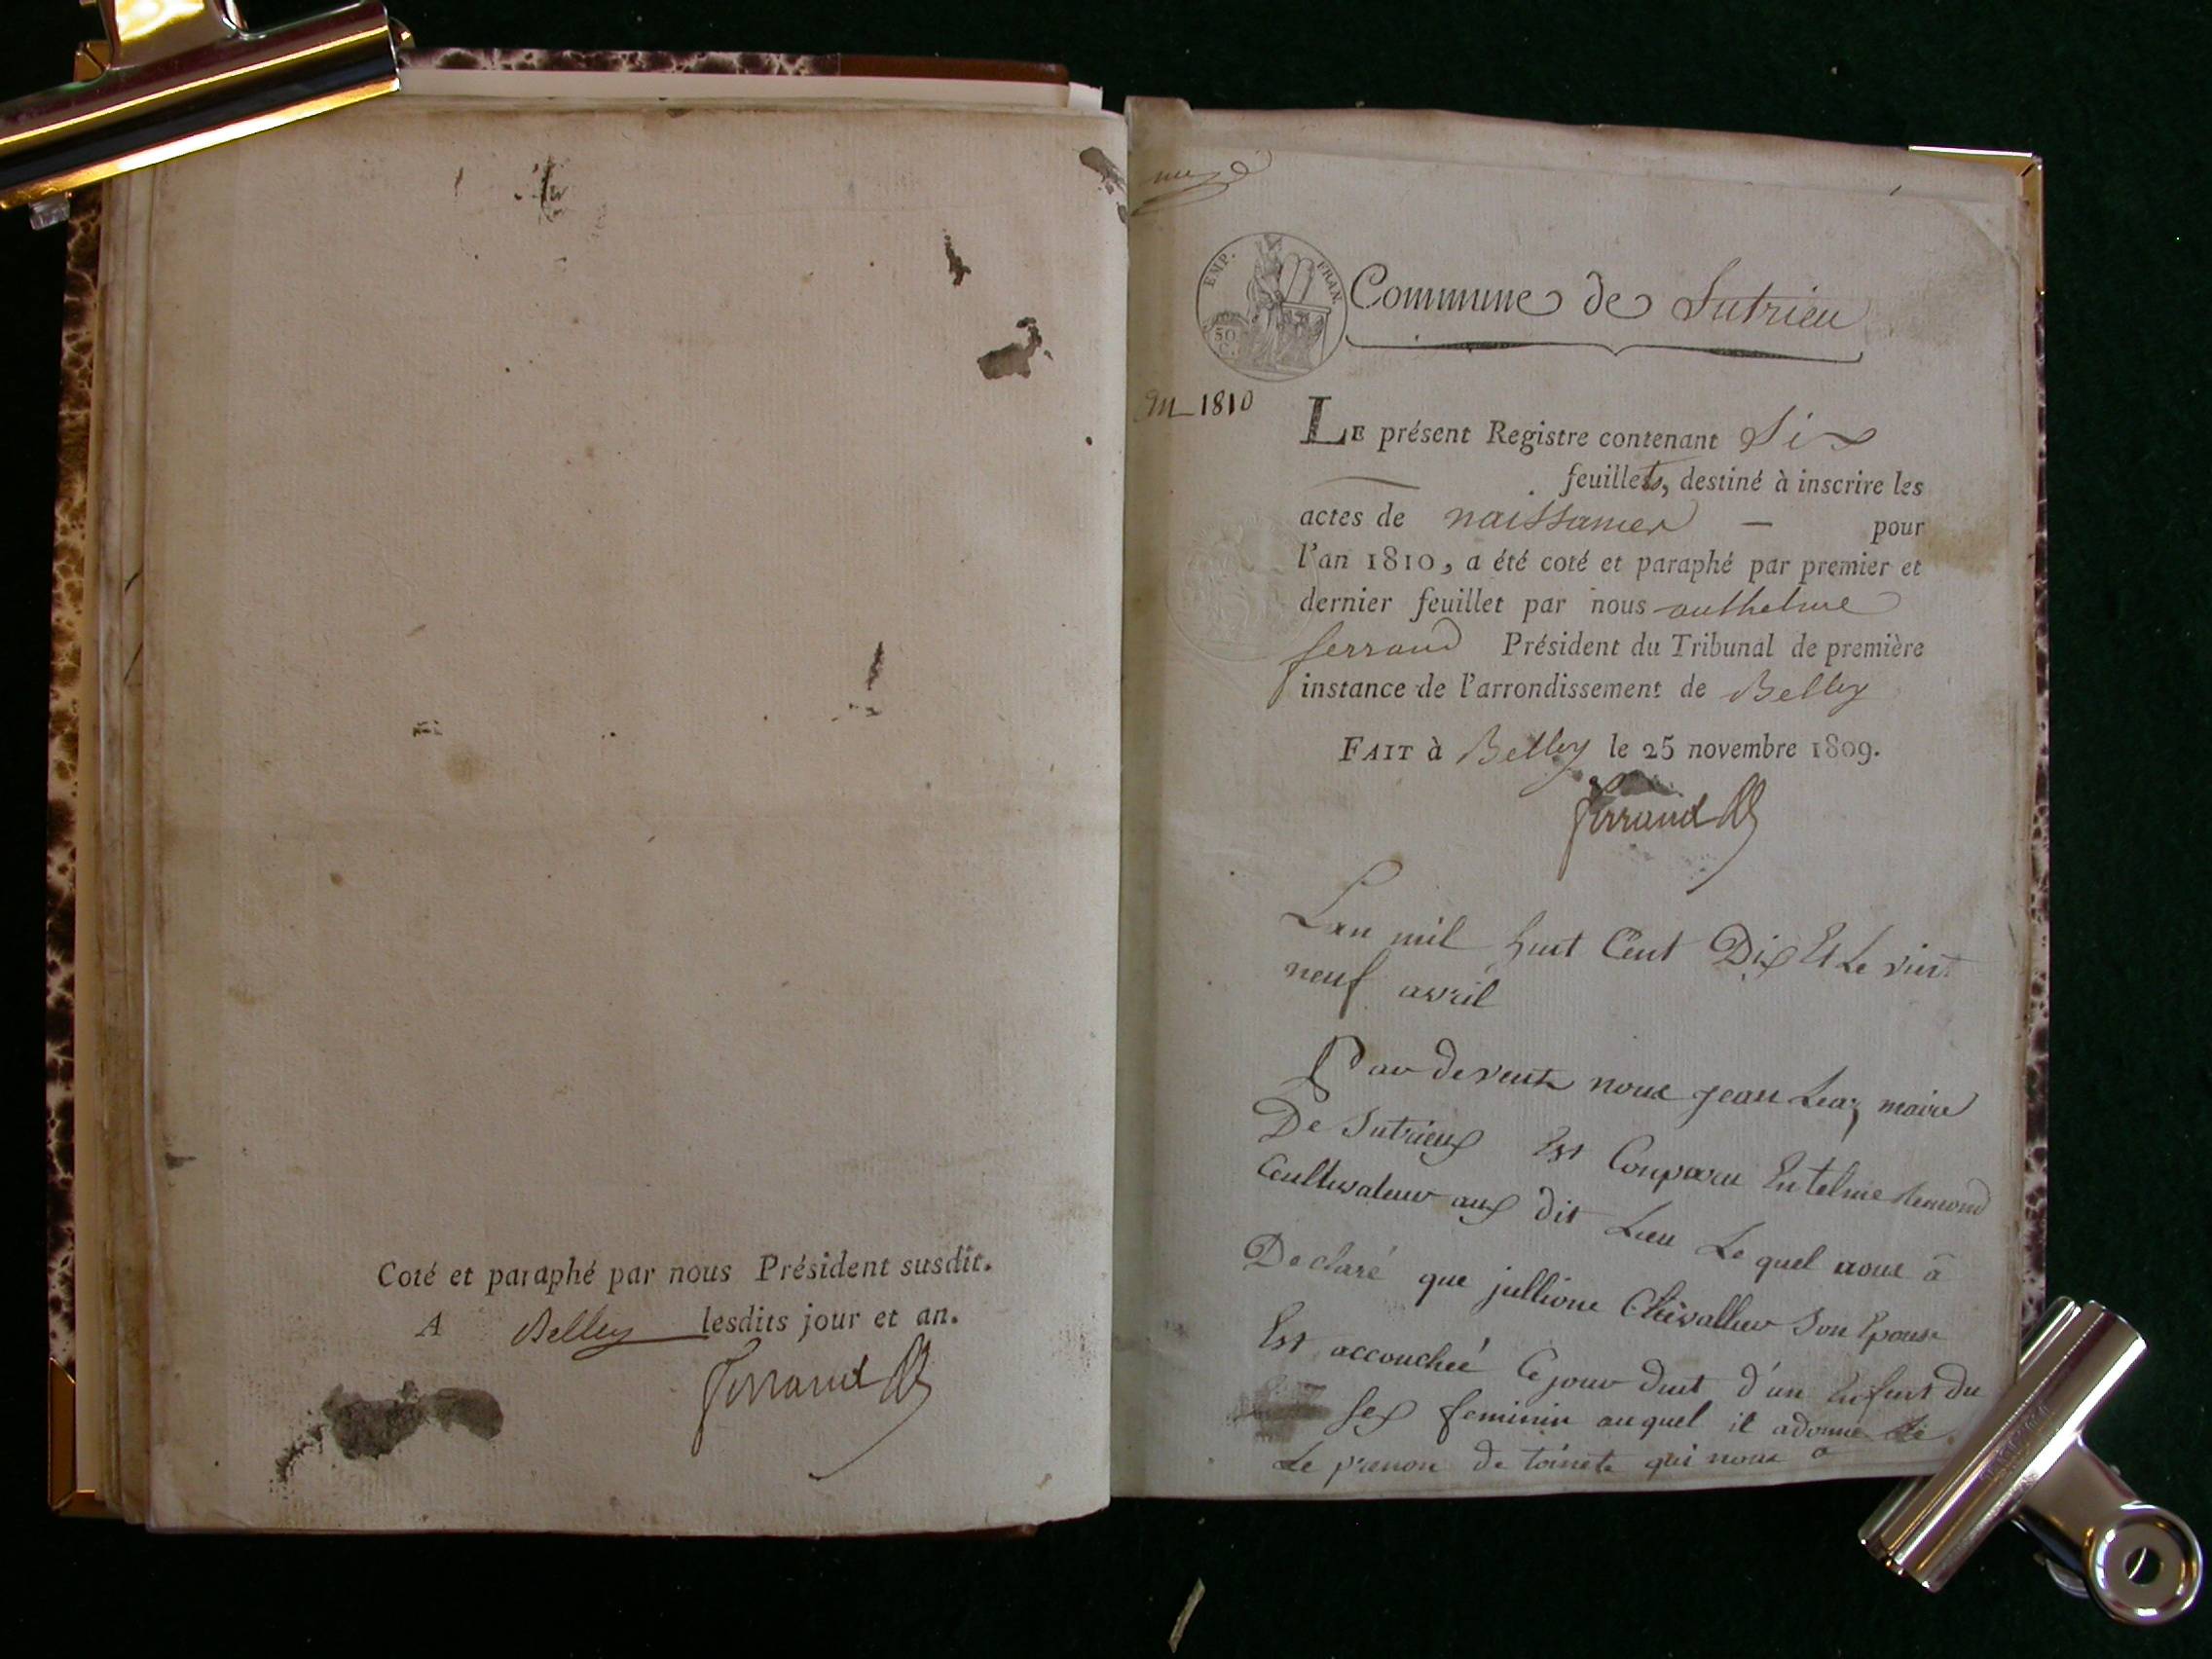 Coté et paraphé par nous Président susdit.
A Belley lesdits jour et an.
Ferrand
EMP. FRAN.
50
C.
Commune de Sutrieu
an 1810
LE présent Registre contenant Six
feuillets, destiné à inscrire les
actes de naissances — pour
l'an 1810, a été coté et paraphé par premier et
dernier feuillet par nous anthelme
ferrand Président du Tribunal de première
instance de l'arrondissement de Belley
FAIT à Belley le 25 novembre 1809.
ferrand
Lan mil huit Cent Dix Et Le vint
neuf avril
Par devent nous jean Leaz maire
De Sutrieux Est Comparu Entelme Remond
Cultivateur aux dit Lieu Le quel nous à
Declaré que jullione Chevallier Son Epouse
Est accouchéé Ce jour duit d'un Enfent du
sex feminin auquel il adonné
Le prenon de toinete qui nous a